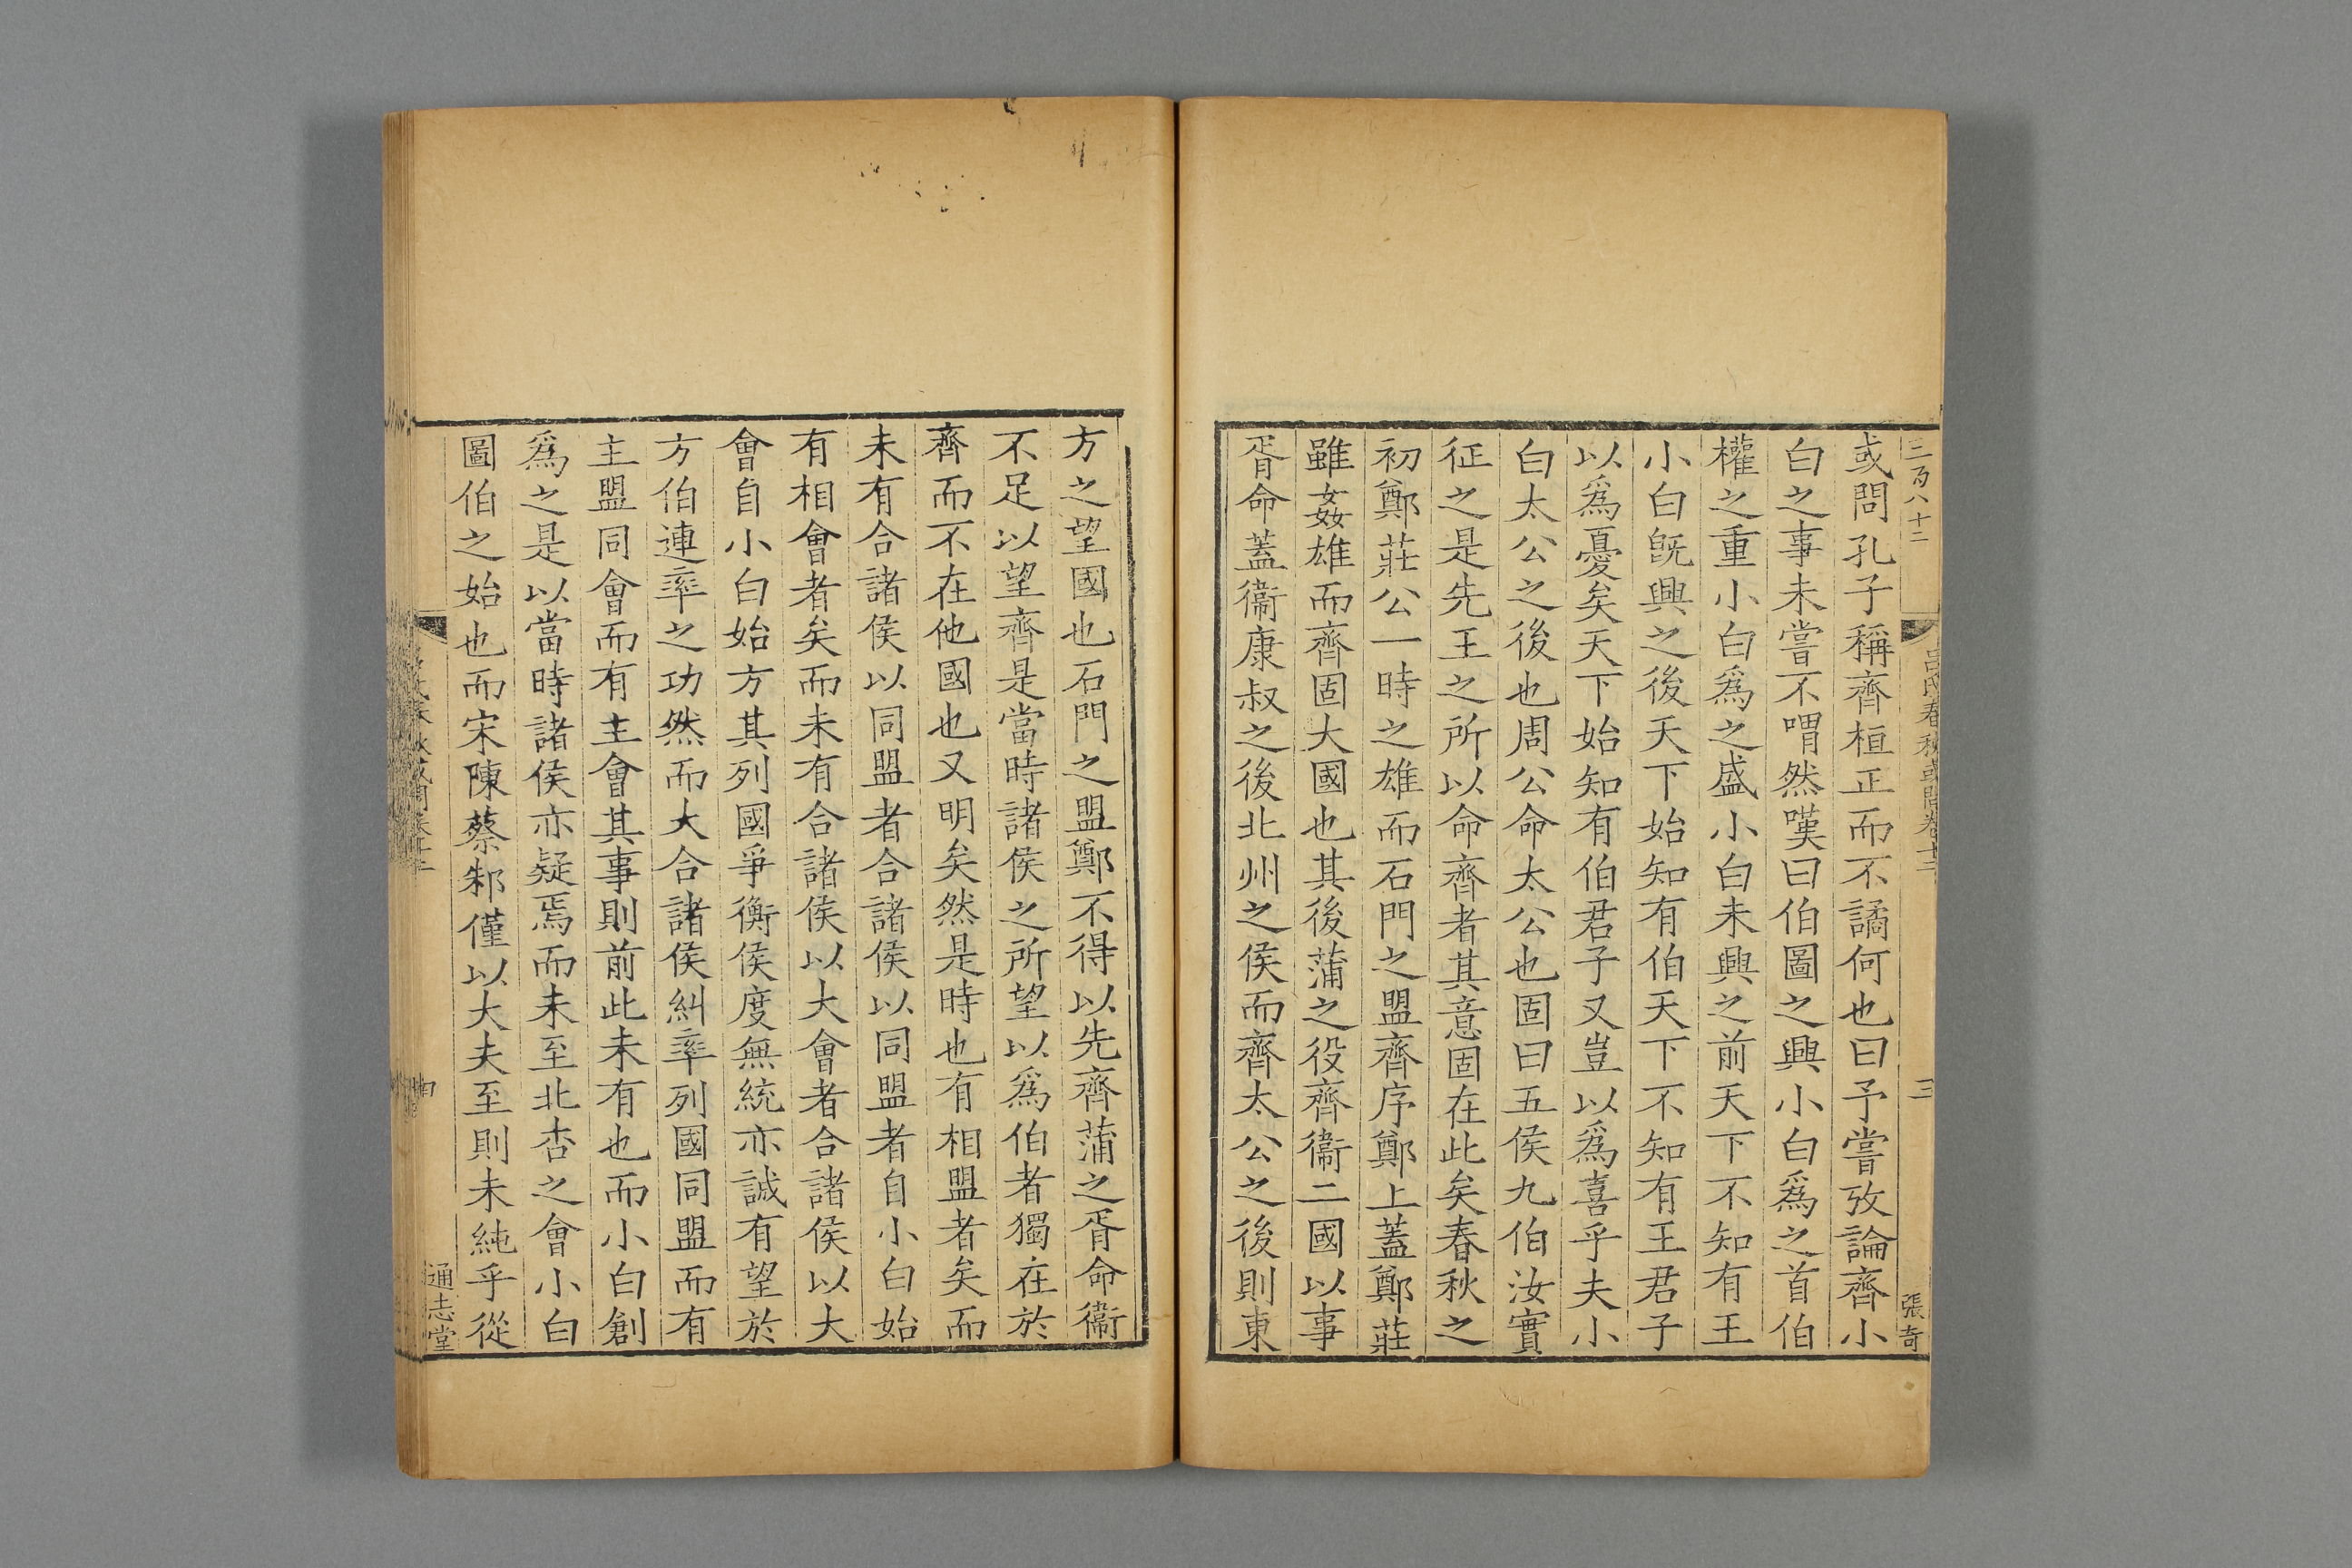 三百八十二
呂氏春秋或問卷十二
三
張奇
或問孔子稱齊桓正而不譎何也曰予嘗攷論齊小
白之事未嘗不喟然嘆曰伯圖之興小白爲之首伯
權之重小白爲之盛小白未興之前天下不知有王
小白旣興之後天下始知有伯天下不知有王君子
以爲憂矣天下始知有伯君子又豈以爲喜乎夫小
白太公之後也周公命太公也固曰五侯九伯汝實
征之是先王之所以命齊者其意固在此矣春秋之
初鄭莊公一時之雄而石門之盟齊序鄭上蓋鄭莊
雖姦雄而齊固大國也其後蒲之役齊衞二國以事
胥命蓋衞康叔之後北州之侯而齊太公之後則東
方之望國也石門之盟鄭不得以先齊蒲之胥命衞
不足以望齊是當時諸侯之所望以爲伯者獨在於
齊而不在他國也又明矣然是時也有相盟者矣而
未有合諸侯以同盟者合諸侯以同盟者自小白始
有相會者矣而未有合諸侯以大會者合諸侯以大
會自小白始方其列國爭衡侯度無統亦誠有望於
方伯連率之功然而大合諸侯糾率列國同盟而有
主盟同會而有主會其事則前此未有也而小白創
爲之是以當時諸侯亦疑焉而未至北杏之會小白
圖伯之始也而宋陳蔡邾僅以大夫至則未純乎從
通志堂